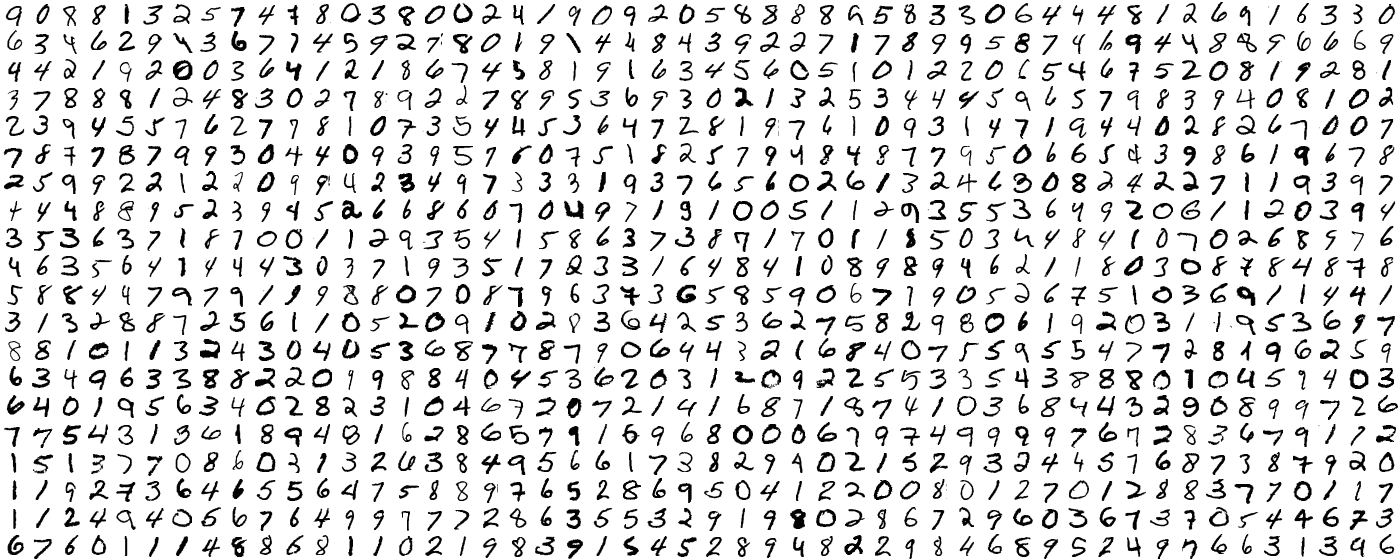 9 0 8 8 1 3 2 5 7 4 7 8 0 3 8 0 0 2 4 1 9 0 9 2 0 5 8 8 8 8 9 5 8 3 3 0 6 4 4 4 8 1 2 6 9 1 6 3 3 0
6 3 4 6 2 9 4 3 6 7 7 4 5 9 2 7 8 0 1 9 1 4 4 8 4 3 9 2 2 7 1 7 8 9 9 5 8 7 4 6 9 4 4 8 8 9 6 6 6 9
4 4 2 1 9 2 0 0 3 6 4 1 2 1 8 6 7 4 5 8 1 9 1 6 3 4 5 6 0 5 1 0 1 2 2 0 6 5 4 6 7 5 2 0 8 1 9 2 8 1
3 7 8 8 8 1 2 4 8 3 0 2 7 8 9 2 2 7 8 9 5 3 6 9 3 0 2 1 3 2 5 3 4 4 4 5 9 6 5 7 9 8 3 9 4 0 8 1 0 2
2 3 9 4 5 5 7 6 2 7 7 8 1 0 7 3 5 4 4 5 3 6 4 7 2 8 1 9 7 6 1 0 9 3 1 4 7 1 9 4 4 0 2 8 2 6 7 0 0 7
7 8 7 7 8 7 9 9 3 0 4 4 0 9 3 9 5 7 6 0 7 5 1 8 2 5 7 9 4 8 4 8 7 7 9 5 0 6 6 5 4 3 9 8 6 1 9 6 7 8
2 5 9 9 2 2 1 2 2 0 9 9 4 2 3 4 9 7 3 3 3 1 9 3 7 6 5 6 0 2 6 1 3 2 4 6 3 0 8 2 4 2 2 7 1 1 9 3 9 7
4 4 4 8 8 9 5 2 3 9 4 5 2 6 6 8 6 0 7 0 4 9 7 1 9 1 0 0 5 1 1 2 9 3 5 5 3 6 4 9 2 0 6 1 1 2 0 3 9 4
3 5 3 6 3 7 1 8 7 0 0 1 1 2 9 3 5 4 1 5 8 6 3 7 3 8 7 1 7 0 1 1 8 5 0 3 4 4 8 4 1 0 7 0 2 6 8 5 7 6
4 6 3 5 6 4 1 4 4 4 3 0 3 7 1 9 3 5 1 7 2 3 3 1 6 4 8 4 1 0 8 9 8 9 4 6 2 1 1 8 0 3 0 8 7 8 4 8 7 8
5 8 8 4 4 7 9 7 9 1 9 9 8 8 0 7 0 8 7 9 6 3 7 3 6 5 8 5 9 0 6 7 7 9 0 5 2 6 7 5 1 0 3 6 9 1 1 4 4 1
3 1 3 2 8 8 7 2 5 6 1 1 0 5 2 0 9 1 0 2 8 3 6 4 2 5 3 6 2 7 5 8 2 9 8 0 6 1 9 2 0 3 1 1 9 5 3 6 9 7
8 8 1 0 1 1 3 2 4 3 0 4 0 5 3 6 8 7 7 8 7 9 0 6 4 4 3 2 1 6 8 4 0 7 5 5 9 5 5 4 7 7 2 8 1 9 6 2 5 9
6 3 4 9 6 3 3 8 8 2 2 0 9 9 8 8 4 0 4 5 3 6 2 0 3 1 2 0 9 2 2 5 5 3 3 5 4 3 8 8 8 0 7 0 4 5 9 4 0 3
6 4 0 1 9 5 6 3 4 0 2 8 2 3 1 0 4 6 7 2 0 7 2 1 4 1 6 8 7 1 8 7 4 1 0 3 6 8 4 4 3 2 9 0 8 9 9 7 2 6
7 7 5 4 3 1 3 6 1 8 9 4 8 1 6 2 8 6 5 7 9 1 6 9 6 8 0 0 0 6 7 9 7 4 9 9 9 9 7 6 7 2 8 3 6 7 9 1 1 2
1 5 1 3 7 7 0 8 6 0 3 7 3 2 6 3 8 4 9 5 6 6 1 7 3 8 2 9 4 0 2 1 5 2 9 3 2 4 4 5 7 6 8 7 3 8 7 9 2 0
1 1 9 2 7 3 6 4 6 5 5 6 4 7 5 8 8 9 7 6 5 2 8 6 9 5 0 4 1 2 2 0 0 8 0 1 2 7 0 1 2 8 8 3 7 7 0 1 1 7
1 1 2 4 9 4 0 5 6 7 6 4 9 9 7 7 7 2 8 6 3 5 5 3 2 9 1 9 8 0 2 8 6 7 2 9 6 0 3 6 7 3 7 0 5 4 4 6 7 3
6 7 6 0 1 1 1 4 8 8 6 8 1 1 0 2 1 9 8 3 9 1 5 4 5 2 8 9 4 8 2 2 9 8 4 6 8 9 5 2 4 9 7 6 6 3 1 3 9 6